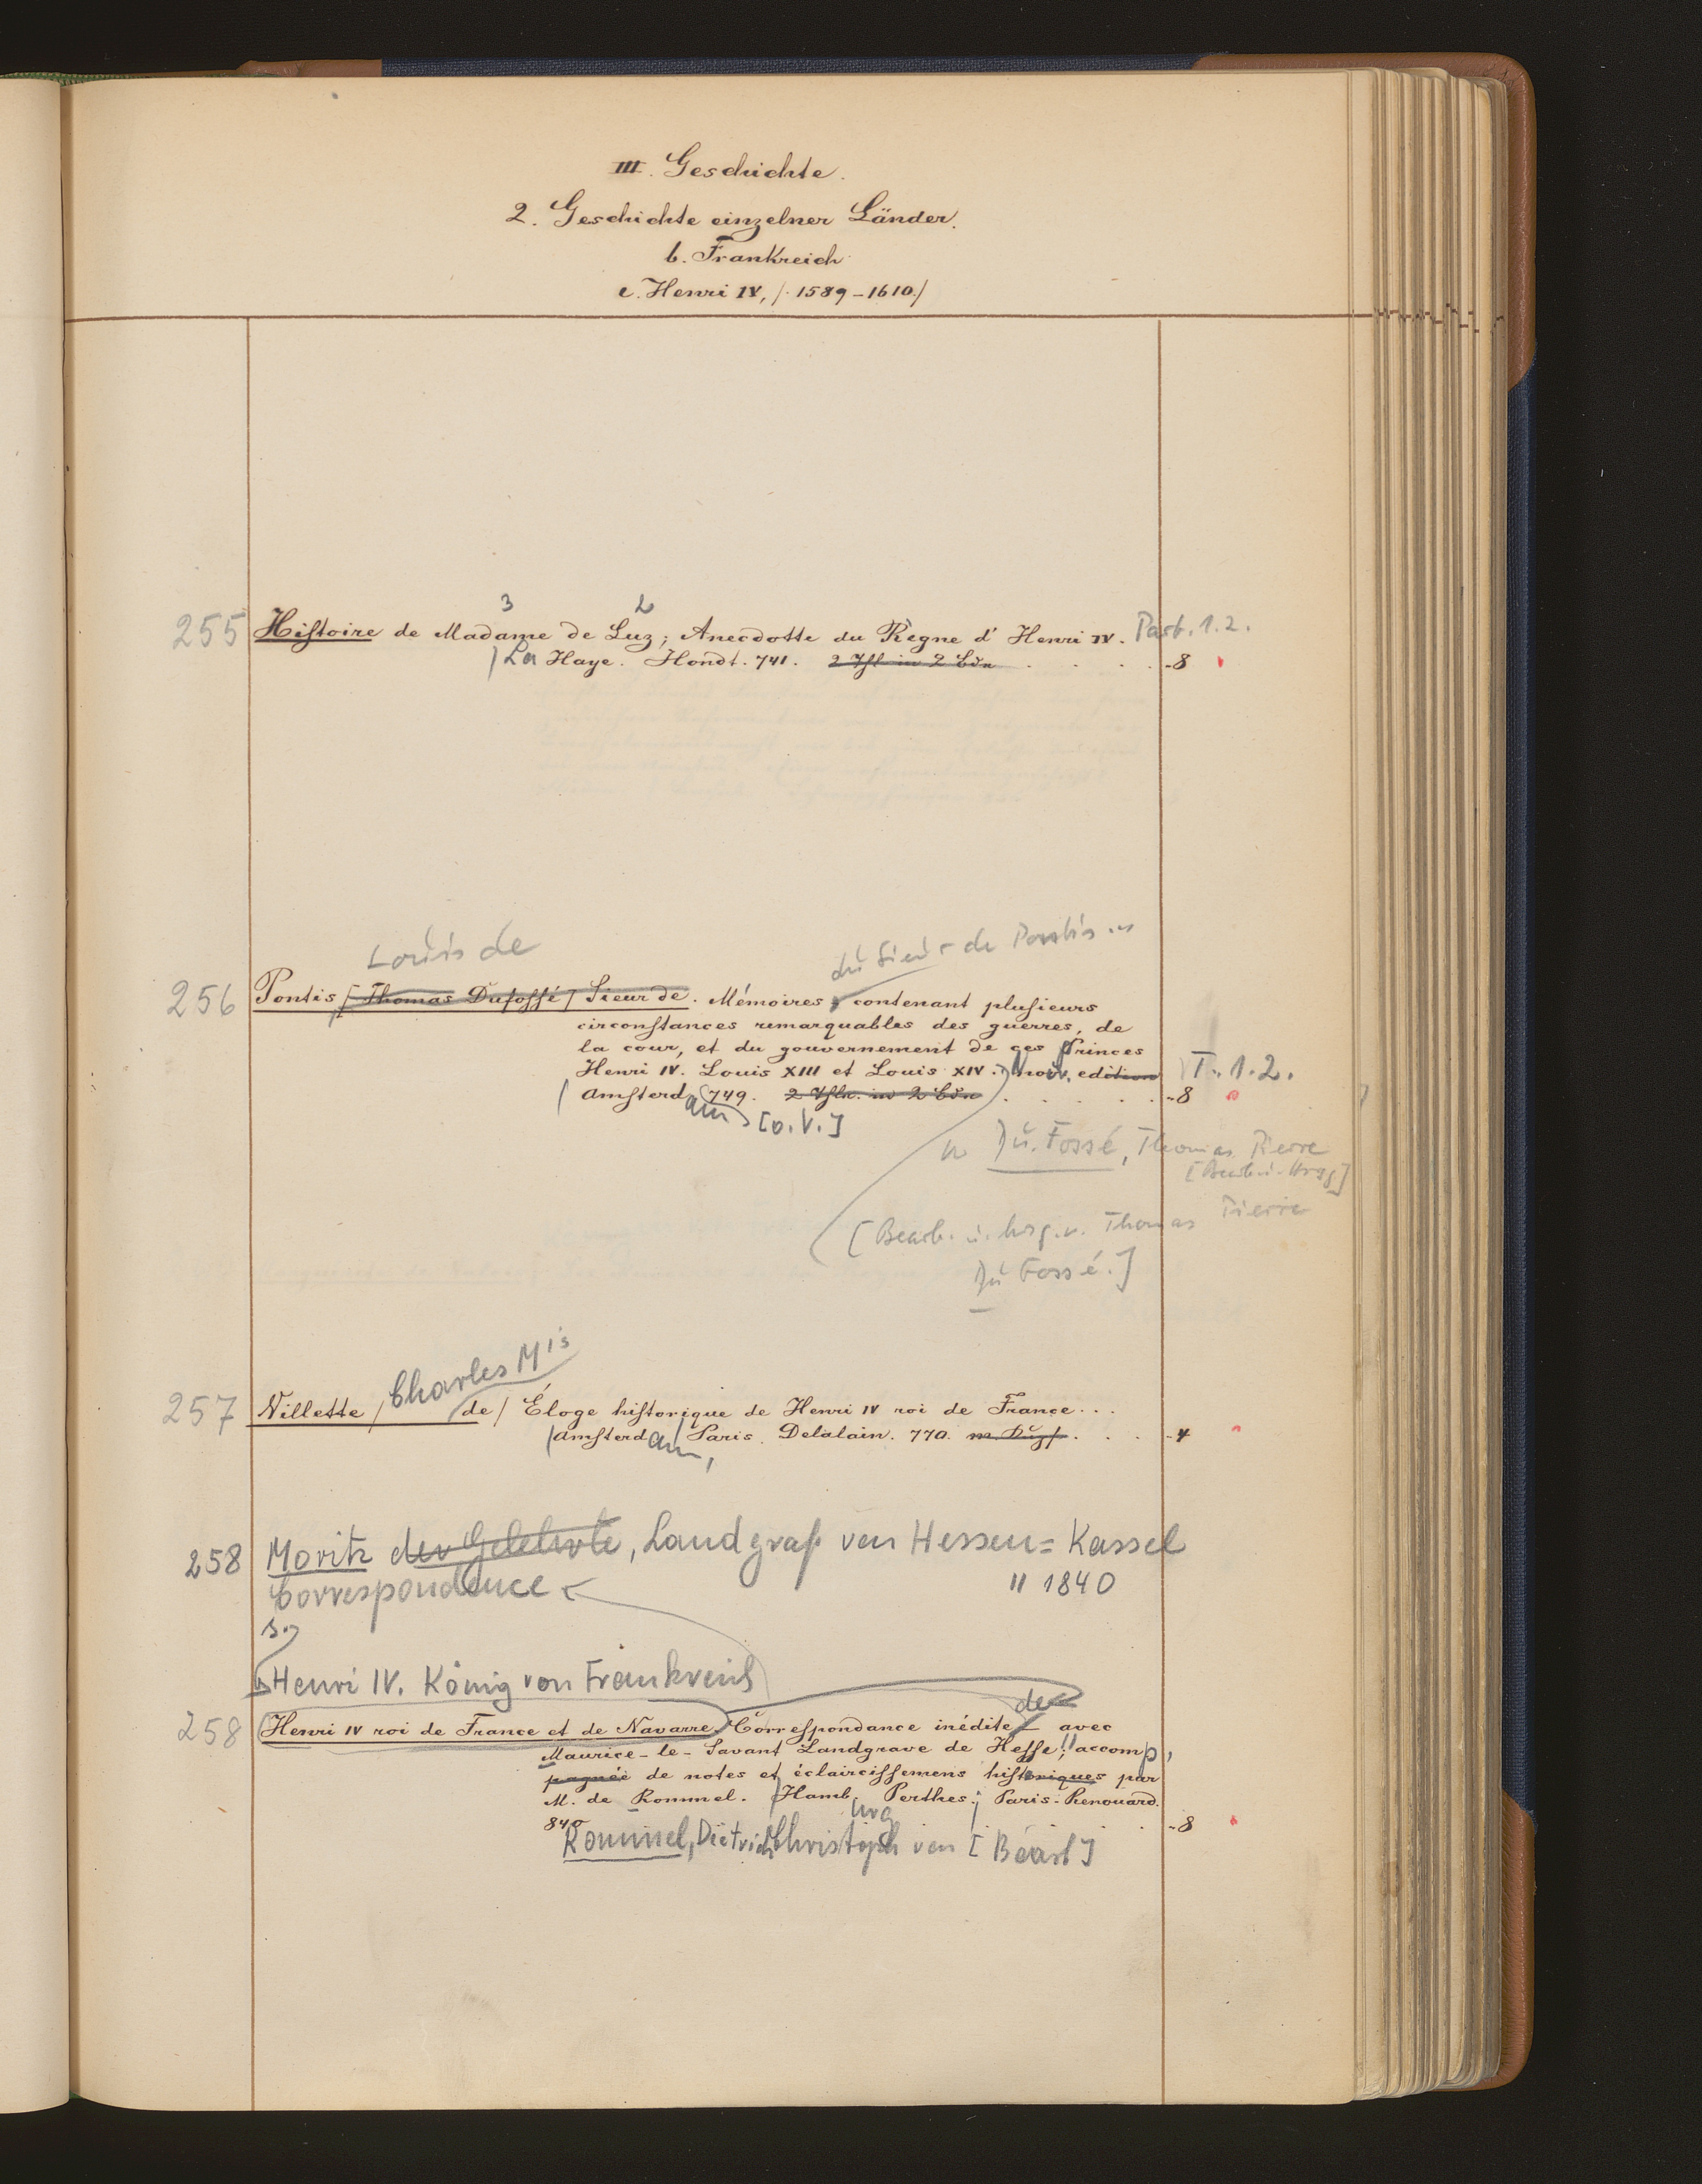 III. Geschichte.
2. Geschichte einzelner Länder.
b. Frankreich
c. Henri IV, /. 1589-1610./
3 2
255 Histoire de Madame de Luz; Anecdotte du Règne d' Henri IV. Part. 1.2.
La Haye. Hondt. 741. 2 Thl in 2 Bdn - 8
Louis de du Sieur de Pontis
256 Pontis, [Thomas Dufossé] Sieur de. Mémoires, contenant plusieurs
circonstances remarquables des guerres, de
la cour, et du gouvernement de ces Princes
Henri IV. Louis XIII et Louis XIV. Nouv. edition T. 1.2.
Amsterdam 749. 2 Thle. in 2 Bdn - 8
[o. V.]
Du Fossé, Thomas Pierre
[Bearb. u. Hrsg]
[Bearb. u. hrsg. v. Thomas Pierre
Du Fossé.]
Charles Mis
257 Villette / de / Éloge historique de Henri IV roi de France...
Amsterdam, Paris. Delalain. 770. - 4
258 Moritz der Gelehrte, Landgraf von Hessen=Kassel
Correspondence " 1840
s.
Henri IV. König von Frankreich
de
258 Henri IV roi de France et de Navarre. Correspondance inédite - avec
Maurice-le-Savant Landgrave de Hesse; accomp,
pagnée de notes et éclaircissemens historiques par
M. de Rommel. Hamburg Perthes.; Paris. Renouard.
840 - 8
Rommel, Dietrich Christoph von [Bearb]